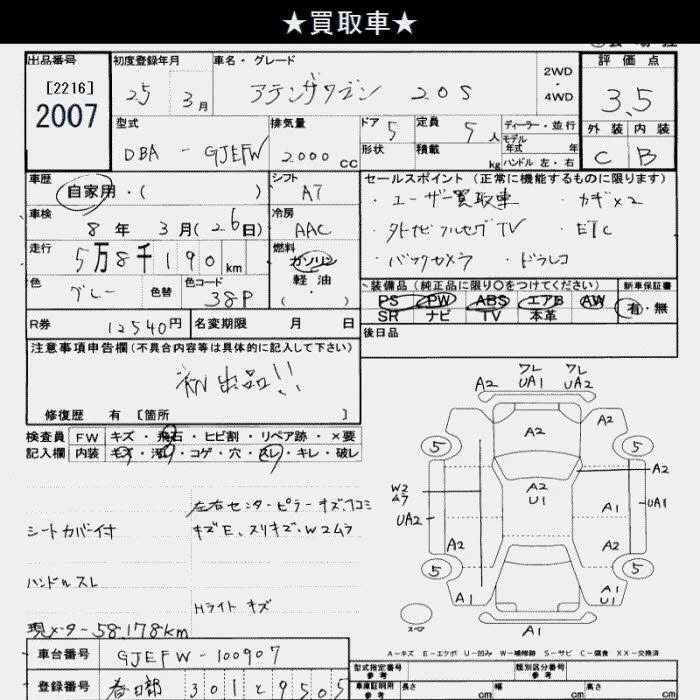 ★買取車★
出品番号 初度登録年月 車名・グレード 2WD・4WD 評価点
[2216]
2007
25 3月 アテンザワゴン 20S 3.5
型式 排気量 ドア 5 定員 5人 ディーラー・並行 外装 内装
DBA-GJEFW 2000cc 形状 積載 kg モデル年式 年 C B
ハンドル 左・右
車歴 自家用・( ) シフト AT セールスポイント(正常に機能するものに限ります)
・ユーザー買取車 ・カギ×2
車検 8年 3月(26日) 冷房 AAC ・外ナビフルセグTV ・ETC
走行 5万8千190km 燃料 ガソリン 軽油 ・( ) ・バックカメラ ・ドラレコ
色 グレー 色替 色コード 38P 装備品(純正品に限り○をつけてください) 新車保証書
PS PW ABS エアB AW 有・無
SR ナビ TV 本革
R券 12540円 名変期限 月 日 後日品
注意事項申告欄(不具合内容等は具体的に記入して下さい)
初出品!!
修復歴 有 [箇所 ]
検査員 FW キズ・飛石・ヒビ割・リペア跡・×要
記入欄 内装 キズ・汚れ・コゲ・穴・スレ・キレ・破レ
左右センターピラーキズ、凹コミ
シートカバー付 キズE、スリキズ、W2ムラ
ハンドルスレ
Hライトキズ
現メーター58,178km
A2 ワレ UA1 ワレ UA2
A2 A2
5 5
A2
W2 ムラ A2 U1 UA1
UA2 A1
A2 A2
5 5
A1 U1
スペア A1
A-キズ E-エクボ U-凹み W-補修跡 S-サビ C-腐食 XX-交換済
車台番号 GJEFW-100907 型式指定番号 参考 類別区分番号 参考
登録番号 春日部 301 と 9505 車庫証明用 参考 長さ cm 幅 cm 高さ cm